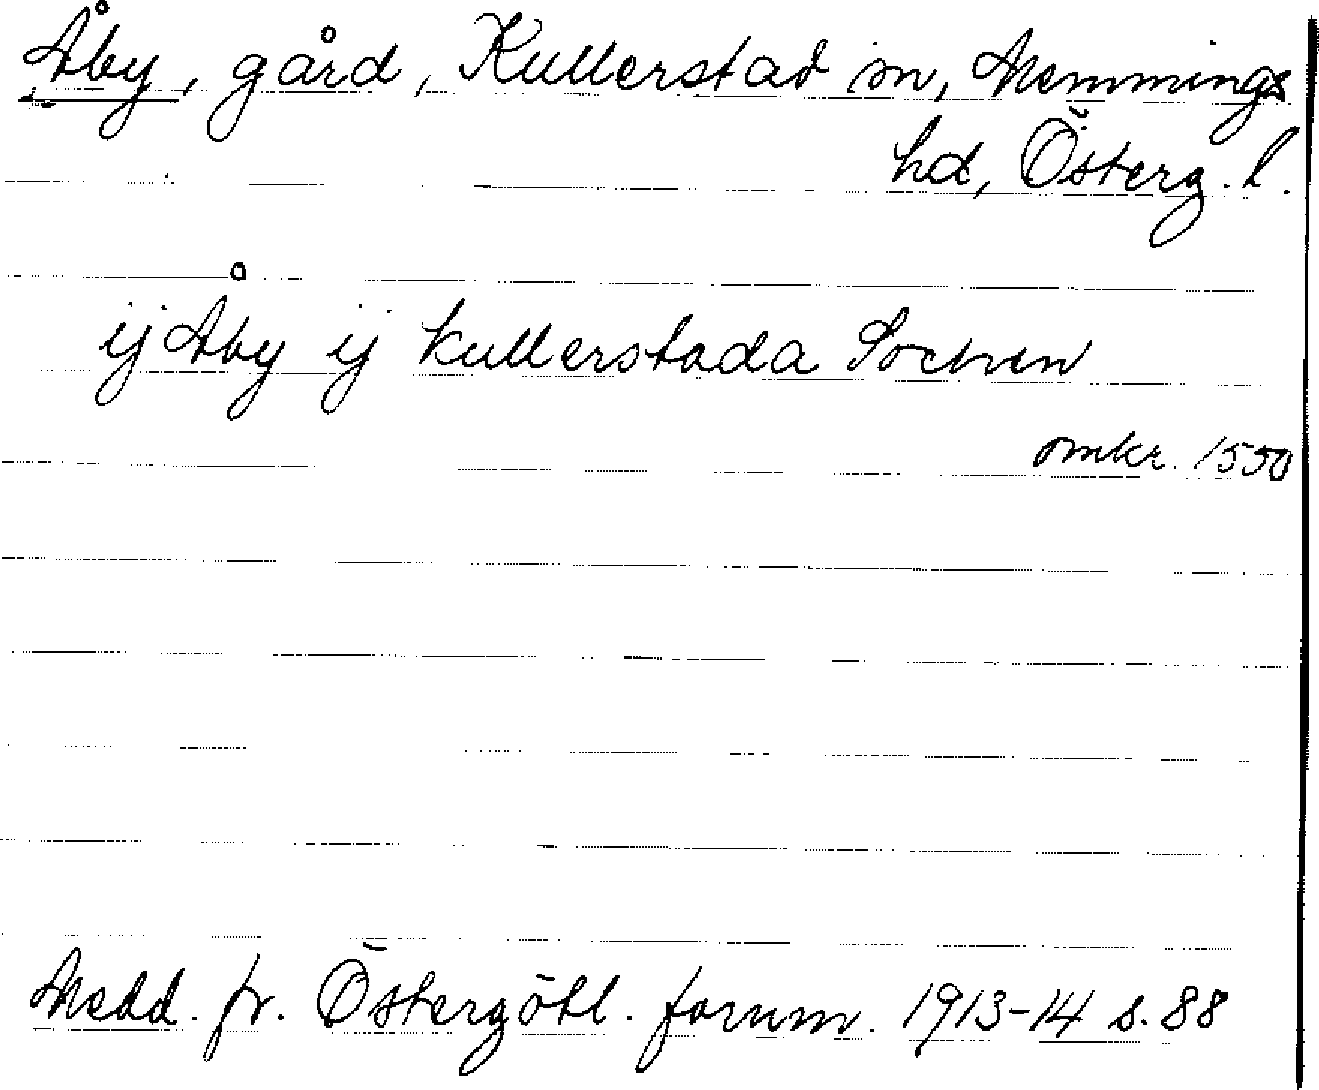 Åby, gård, Kullerstad sn, Memmings
hd, Österg. l.
ij Åby ij kullerstada Sochen
omkr. 1550
Medd. fr. Östergötl. fornm. 1913-14 s. 88